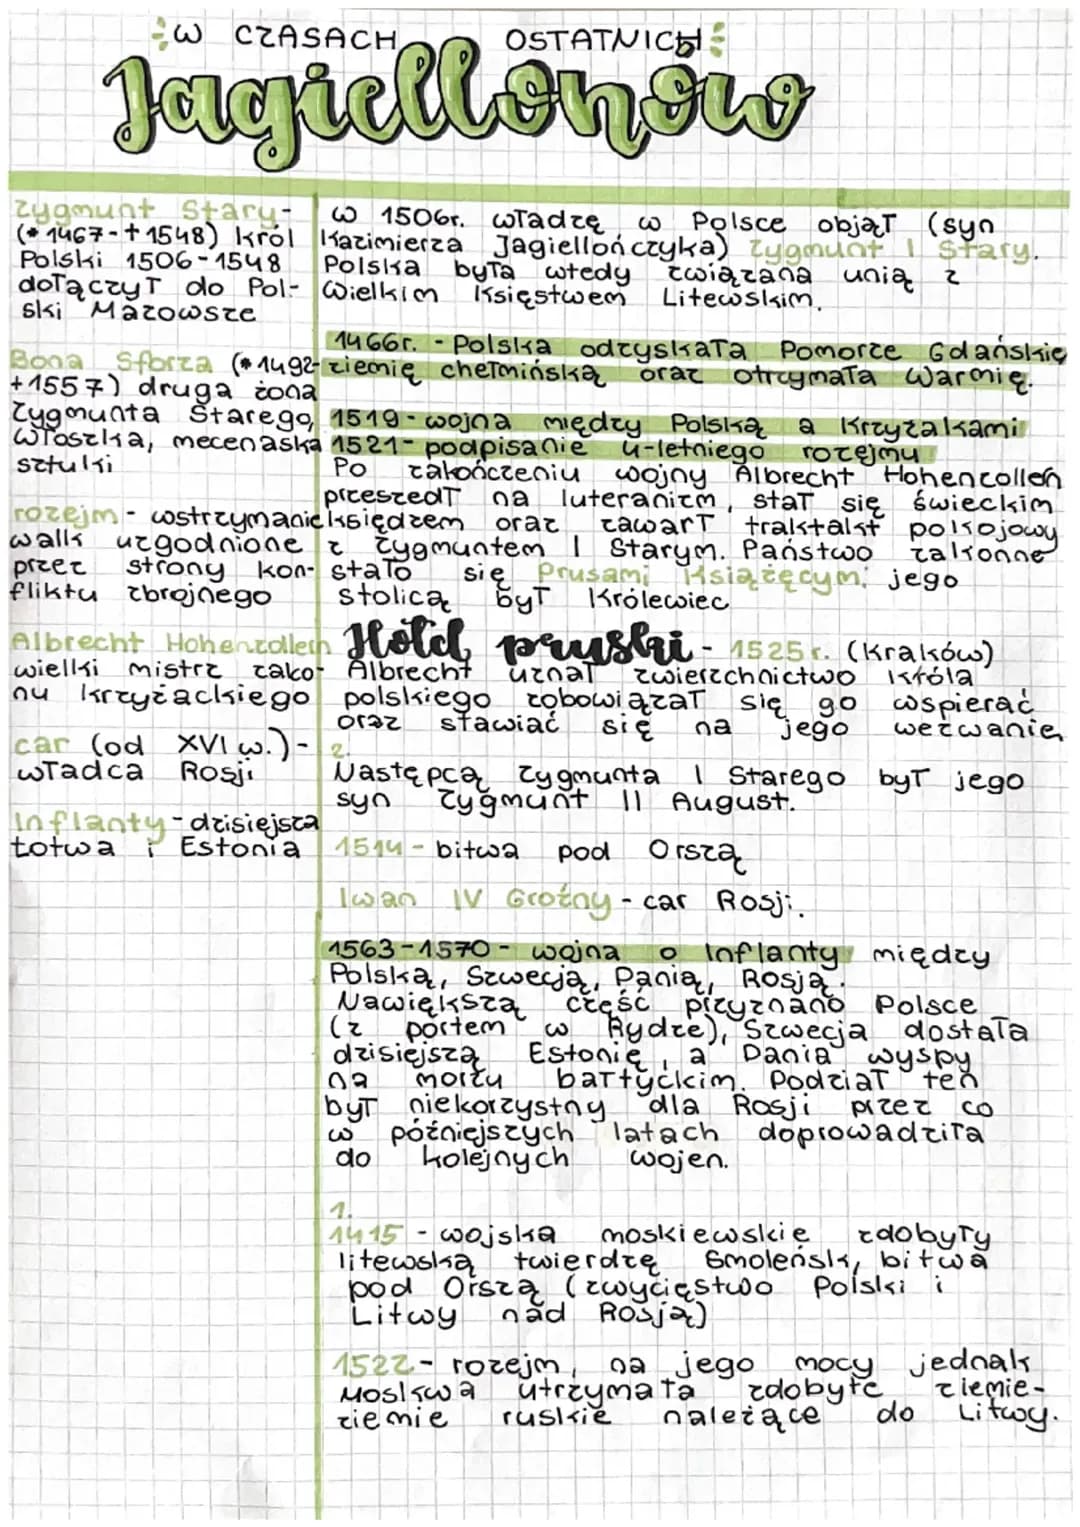 W CZASACH OSTATNICH
Jagiellonów
Zygmunt Stary-
(*1467-+1548) król
Polski 1506-1548
dołączył do Pol-
ski Mazowsze
Bona Sforza (*1492-
+1557) druga żona
Zygmunta Starego,
Włoszka, mecenaska
sztuki
rozejm - wstrzymanie
walk uzgodnione
przez strony kon-
fliktu zbrojnego
Albrecht Hohenzollern
wielki mistrz zako-
nu krzyżackiego
car (od XVI w.)-
władca Rosji
Inflanty - dzisiejsza
Łotwa i Estonia
W 1506r. władzę w Polsce objął (syn
Kazimierza Jagiellończyka) Zygmunt I Stary.
Polska była wtedy związana unią z
Wielkim Księstwem Litewskim.
1466r. - Polska odzyskała Pomorze Gdańskie
ziemię chełmińską oraz otrzymała Warmię.
1519 - wojna między Polską a Krzyżakami
1521 - podpisanie 4-letniego rozejmu
Po zakończeniu wojny Albrecht Hohenzollen
przeszedł na luteranizm, stał się świeckim
księdzem oraz zawarł traktakt pokojowy
z Zygmuntem I Starym. Państwo zakonne
stało się Prusami Książęcymi jego
stolicą był Królewiec
Hołd pruski - 1525r. (Kraków)
Albrecht uznał zwierzchnictwo króla
polskiego zobowiązał się go wspierać
oraz stawiać się na jego wezwanie
2.
Następcą Zygmunta I Starego był jego
syn Zygmunt II August.
1514 - bitwa pod Orszą
Iwan IV Groźny - car Rosji.
1563-1570 - wojna o Inflanty między
Polską, Szwecją, Danią, Rosją.
Nawiększą część przyznano Polsce
(z portem w Rydze), Szwecja dostała
dzisiejszą Estonię, a Dania wyspy
na morzu bałtyckim. Podział ten
był niekorzystny dla Rosji przez co
w późniejszych latach doprowadziła
do kolejnych wojen.
1.
1415 - wojska moskiewskie zdobyły
litewską twierdzę Smoleńsk, bitwa
pod Orszą (zwycięstwo Polski i
Litwy nad Rosją)
1522 - rozejm, na jego mocy jednak
Moskwa utrzymała zdobyte ziemie-
ziemie ruskie należące do Litwy.